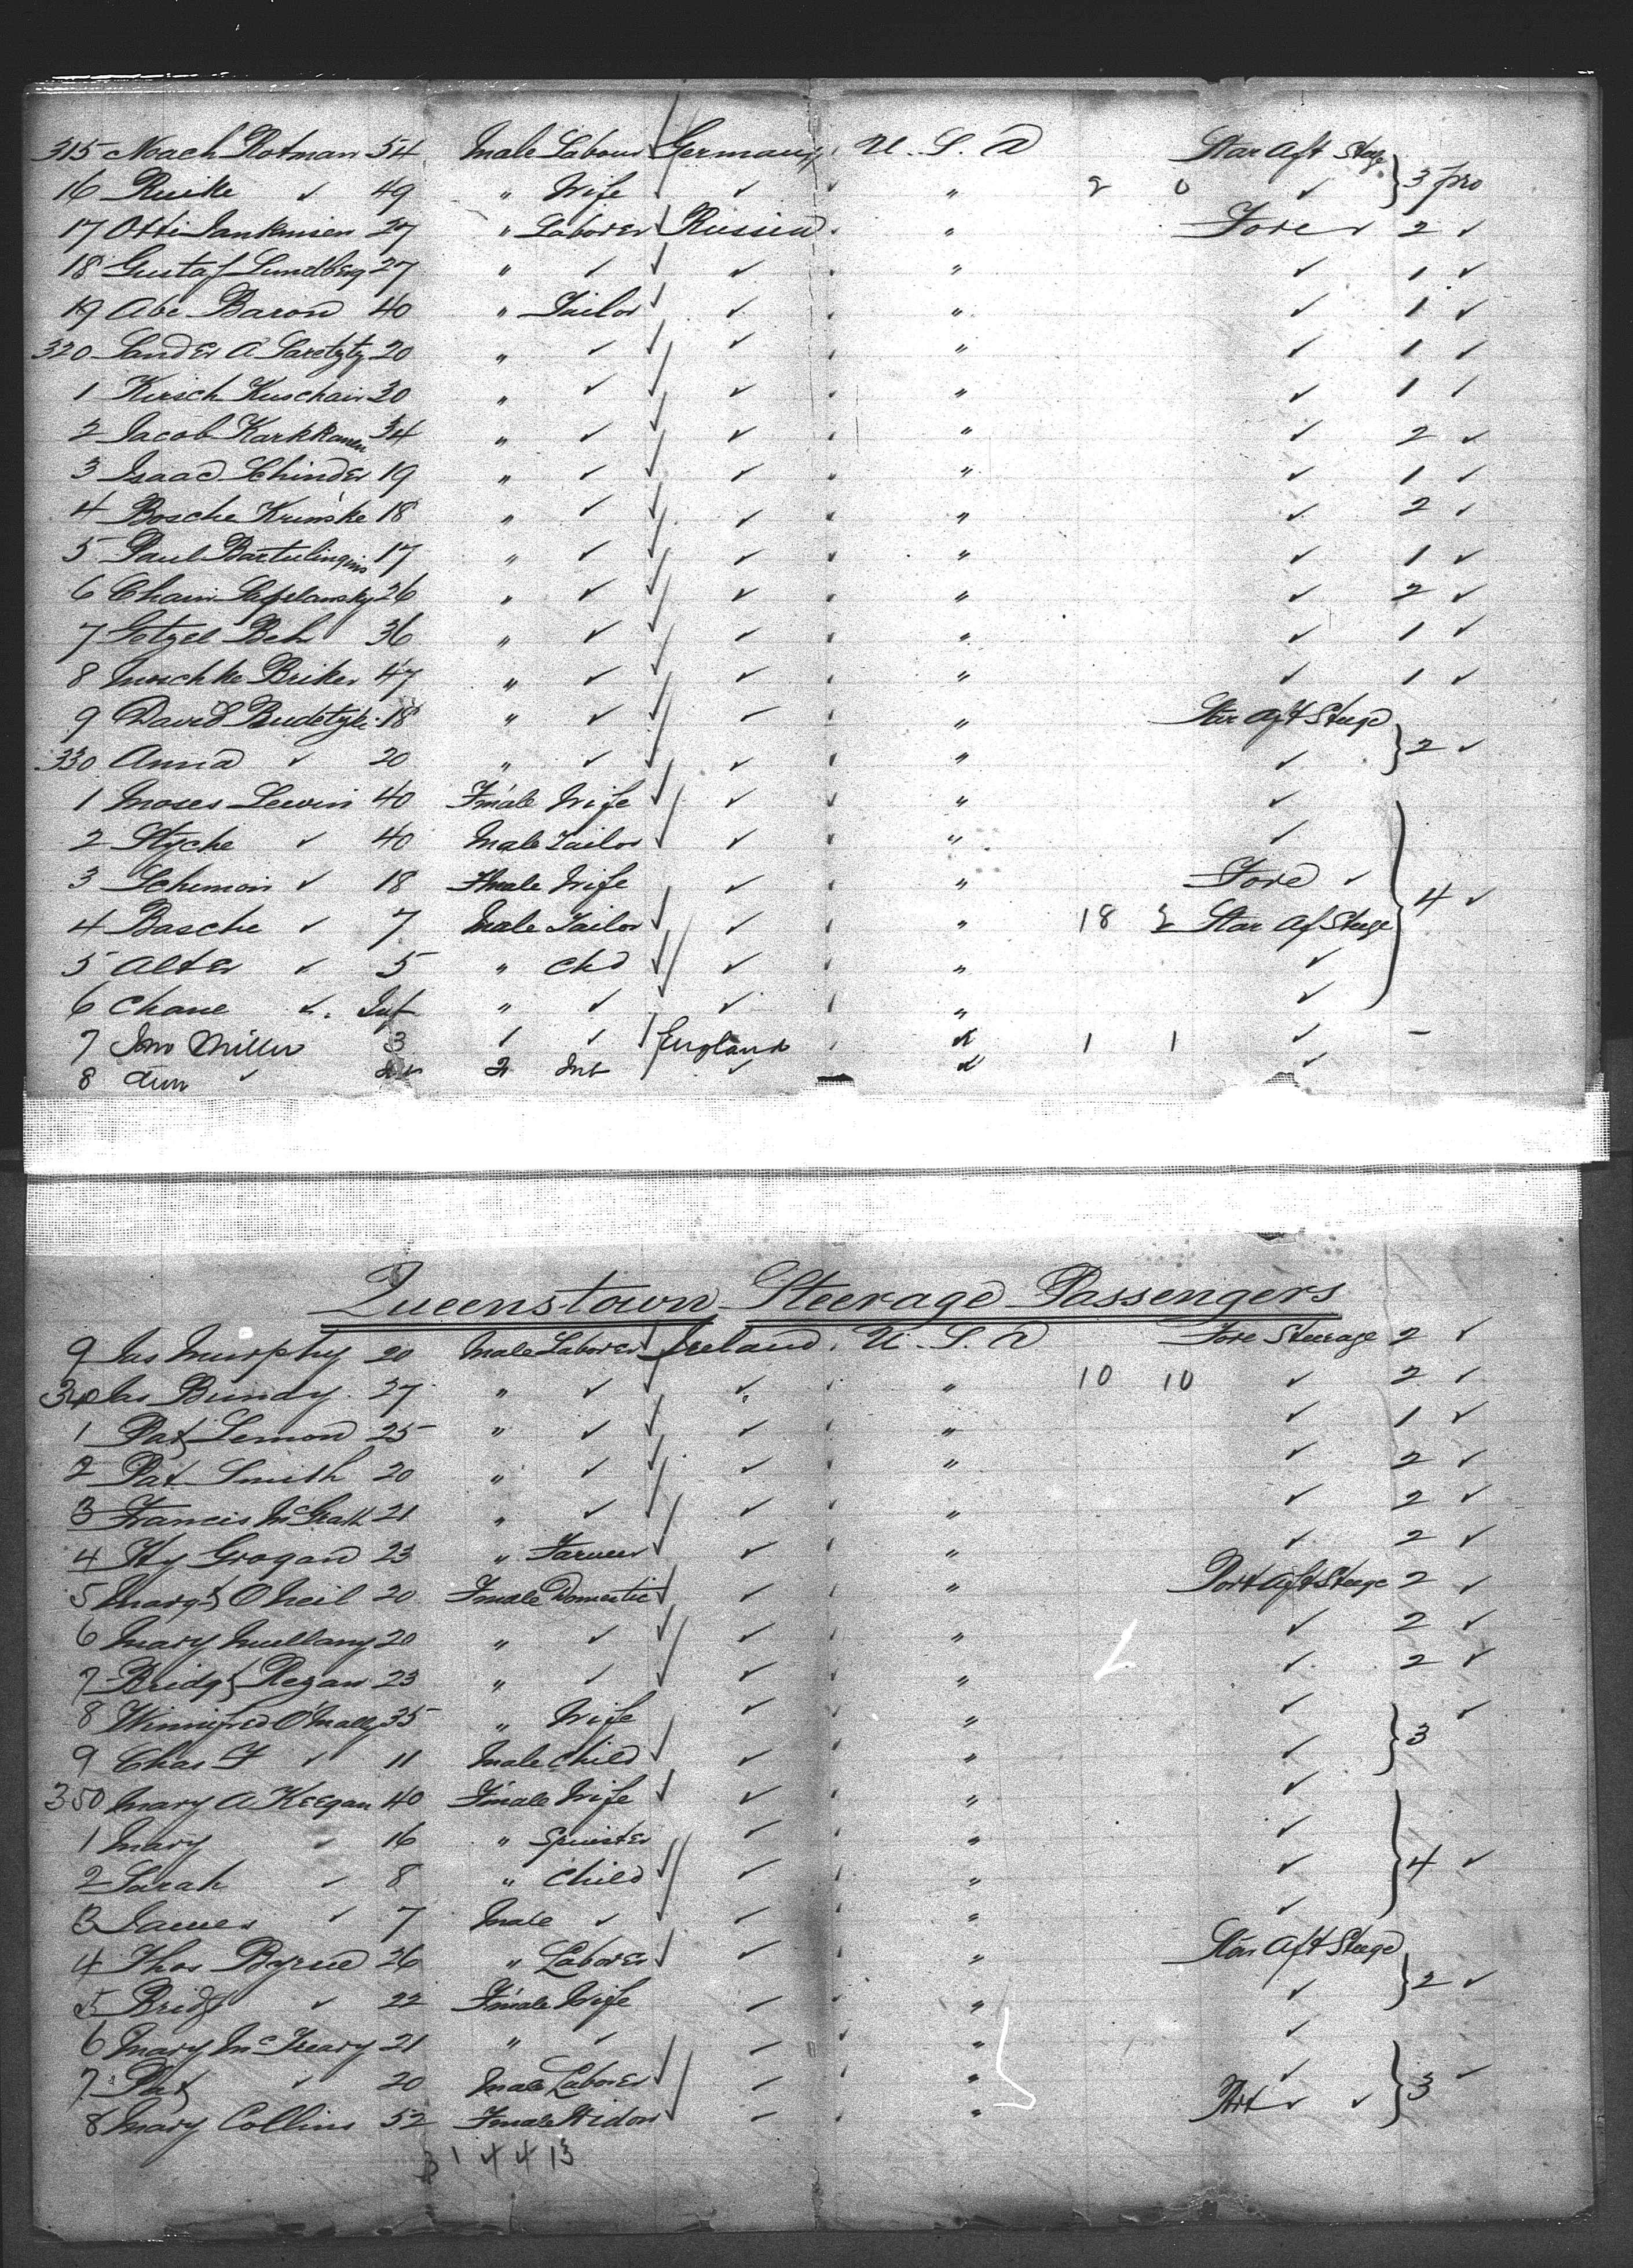 315 Noach Rotman 54 Male Labour Germany U. S. A Star Aft Stege 3 pro
16 Ruike ✓ 49 " Wife ✓ " 2 0 ✓
17 Otti 27 " Laborer Russia " Fore ✓ 2 ✓
18 Gustaf Lundberg 27 " ✓ ✓ " ✓ 1 ✓
19 Abe Baron 40 " Tailor ✓ " ✓ 1 ✓
320 Sander A 20 " ✓ ✓ " ✓ 1 ✓
1 Hirsch Kuschair 30 " ✓ ✓ " ✓ 1 ✓
2 Jacob Karkkanen 34 " ✓ ✓ " ✓ 2 ✓
3 Isaac Schinder 19 " ✓ ✓ " ✓ 1 ✓
4 Bosche Krinske 18 " ✓ ✓ " ✓ 2 ✓
5 Paul 17 " ✓ ✓ " ✓ 1 ✓
6 Chaim 26 " ✓ ✓ " ✓ 2 ✓
7 Getzel Beh 36 " ✓ ✓ " ✓ 1 ✓
8 Moschke Briker 47 " ✓ ✓ " ✓ 1 ✓
9 David 18 " ✓ ✓ " Star Aft Stege 2 ✓
330 Anna ✓ 20 " ✓ ✓ " ✓
1 Moses Lewin 40 Fmale Wife ✓ " ✓
2 Styche ✓ 40 Male Tailor ✓ " ✓
3 Schimon ✓ 18 Fmale Wife ✓ " Fore ✓ 4 ✓
4 Basche ✓ 7 Male Tailor ✓ " 18 Star Af Stege
5 Alter ✓ 5 " Chd ✓ " ✓
6 Chane ✓ Inf " ✓ ✓ " ✓
7 Jno Miller 3 ✓ ✓ England " 1 1 ✓ –
8 Ann ✓ Inf ✓ " ✓
Queenstown Steerage Passengers
9 Jas Murphy 20 Male Laborer Ireland U. S. A Fore Steerage 2 ✓
340 Jas Bundy 27 " ✓ ✓ " 10 10 ✓ 2 ✓
1 Patk Lemon 25 " ✓ ✓ " ✓ 1 ✓
2 Pat Smith 20 " ✓ ✓ " ✓ 2 ✓
3 Francis McGrath 21 " ✓ ✓ " ✓ 2 ✓
4 Hy Grogan 23 " Farmer ✓ " ✓ 2 ✓
5 Margt O'Neil 20 Fmale Domestic ✓ " Port Aft Stege 2 ✓
6 Mary Mullany 20 " ✓ ✓ " ✓ 2 ✓
7 Bridgt Regan 23 " ✓ ✓ " ✓ 2 ✓
8 Winnifred O'Mally 35 " Wife ✓ " ✓ 3 ✓
9 Chas F ✓ 11 Male Child ✓ " ✓
350 Mary A Keegan 40 Fmale Wife ✓ " ✓
1 Mary ✓ 16 " Spinster ✓ " ✓
2 Sarah ✓ 8 " Child ✓ " ✓ 4 ✓
3 James ✓ 7 Male ✓ ✓ " ✓
4 Thos Byrne 26 " Laborer ✓ " Star Aft Stege
5 Bridgt ✓ 22 Fmale Wife ✓ " ✓ 2 ✓
6 Mary 21 " ✓ ✓ " ✓
7 Patk ✓ 20 Male Laborer ✓ " ✓ 3 ✓
8 Mary Collins 52 Fmale Widow ✓ " Port ✓ ✓
3 1 4 4 13